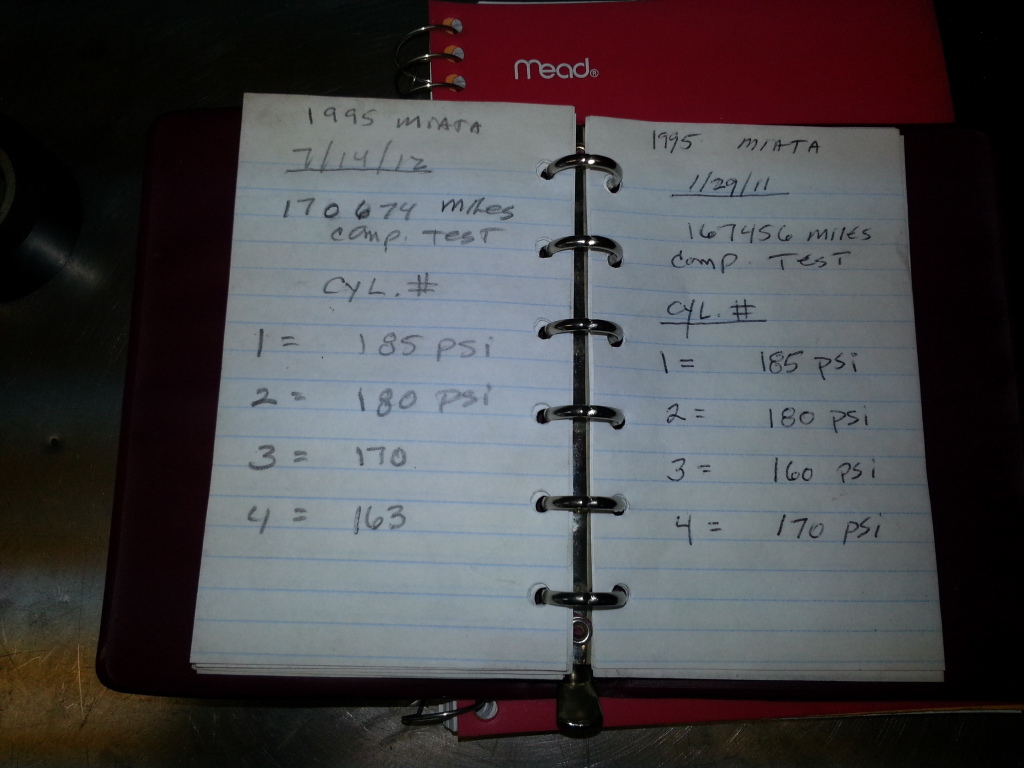 mead®
1995 MIATA
7/14/12
170674 miles
comp. TEST
CYL. #
1 = 185 psi
2 = 180 psi
3 = 170
4 = 163
1995 MIATA
1/29/11
167456 miles
comp. TEST
CYL. #
1 = 185 psi
2 = 180 psi
3 = 160 psi
4 = 170 psi